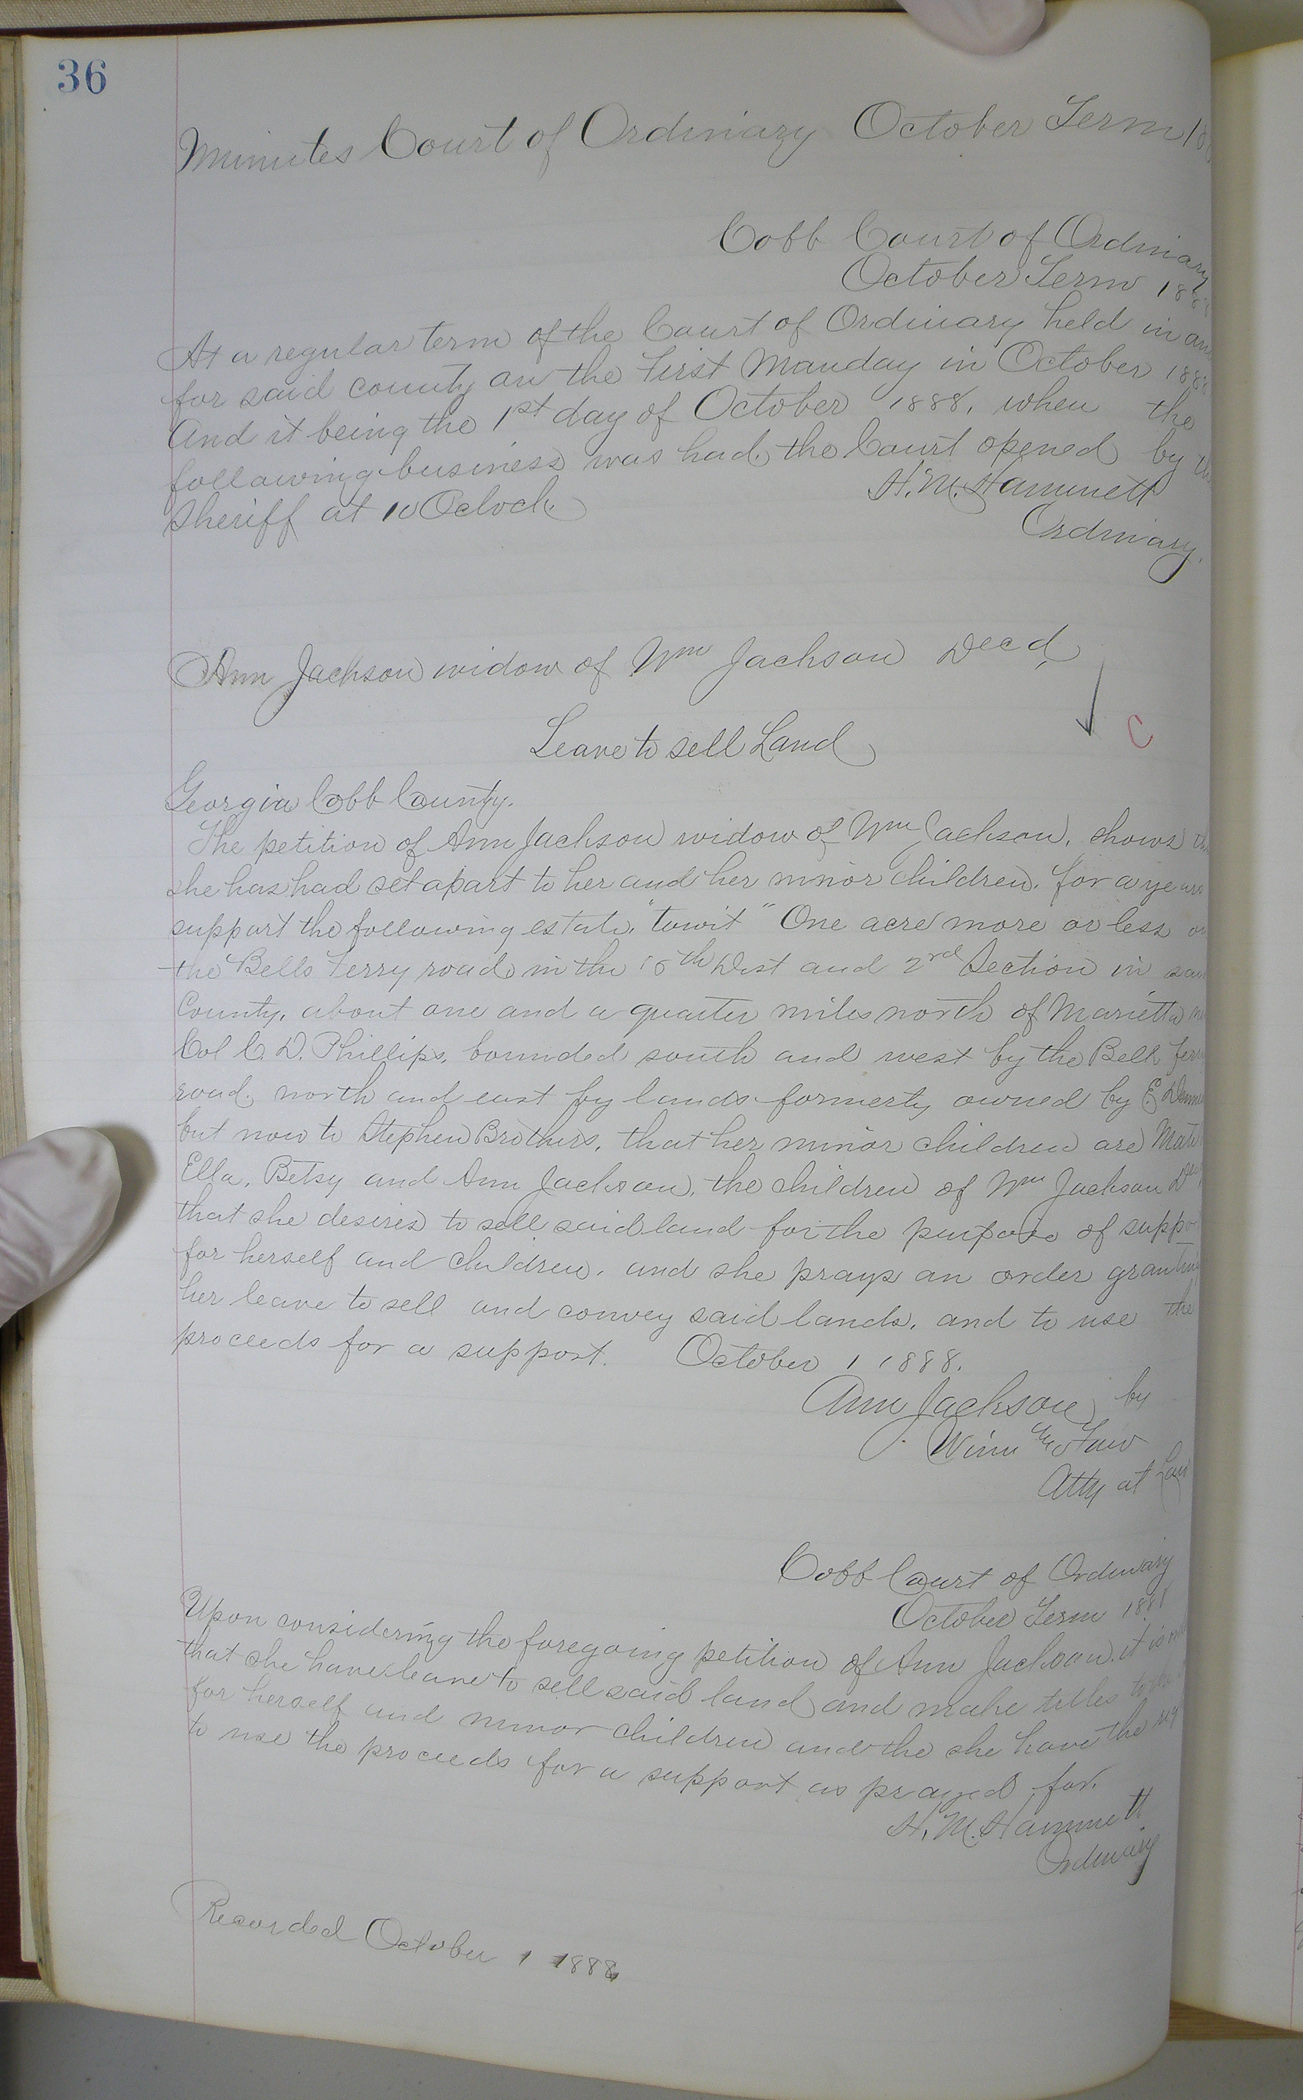 36
Minutes Court of Ordinary October Term 18
Cobb Court of Ordinary
October Term 188
At a regular term of the Court of Ordinary held in an
for said county on the First Monday in October 188
And it being the 1st day of October 1888, when the
following business was had, the Court opened by th
Sheriff at 10 Oclock.
H. M. Hammett
Ordinary.
Ann Jackson widow of Wm Jackson Decd,
C
Leave to sell Land
Georgia Cobb County.
The petition of Ann Jackson widow of Wm Jackson, shows th
she has had set apart to her and her minor children, for a years
support the following estate, "towit" One acre more or less on
the Bells Ferry road in the 16th Dist and 2rd Section in said
County, about one and a quarter miles north of Marietta
Col C. D. Phillips, bounded south and west by the Bell ferry
road, north and east by lands formerly owned by E
but now to Stephen Brothers, that her minor children are
Ella, Betsy and Ann Jackson, the children of Wm Jackson
that she desires to sell said land for the purpose of suppo
for herself and children, and she prays an order granting
her leave to sell and convey said lands, and to use the
proceeds for a support. October 1 1888.
Ann Jackson, by
Winn & Faw
Atty at Law
Cobb Court of Ordinary
October Term 1888
Upon considering the foregoing petition of Ann Jackson, it is
that she have leave to sell said land and make titles
for herself and minor children and the she have the
to use the proceeds for a support as prayed for.
H. M. Hammett
Ordinary
Recorded October 1 1888,